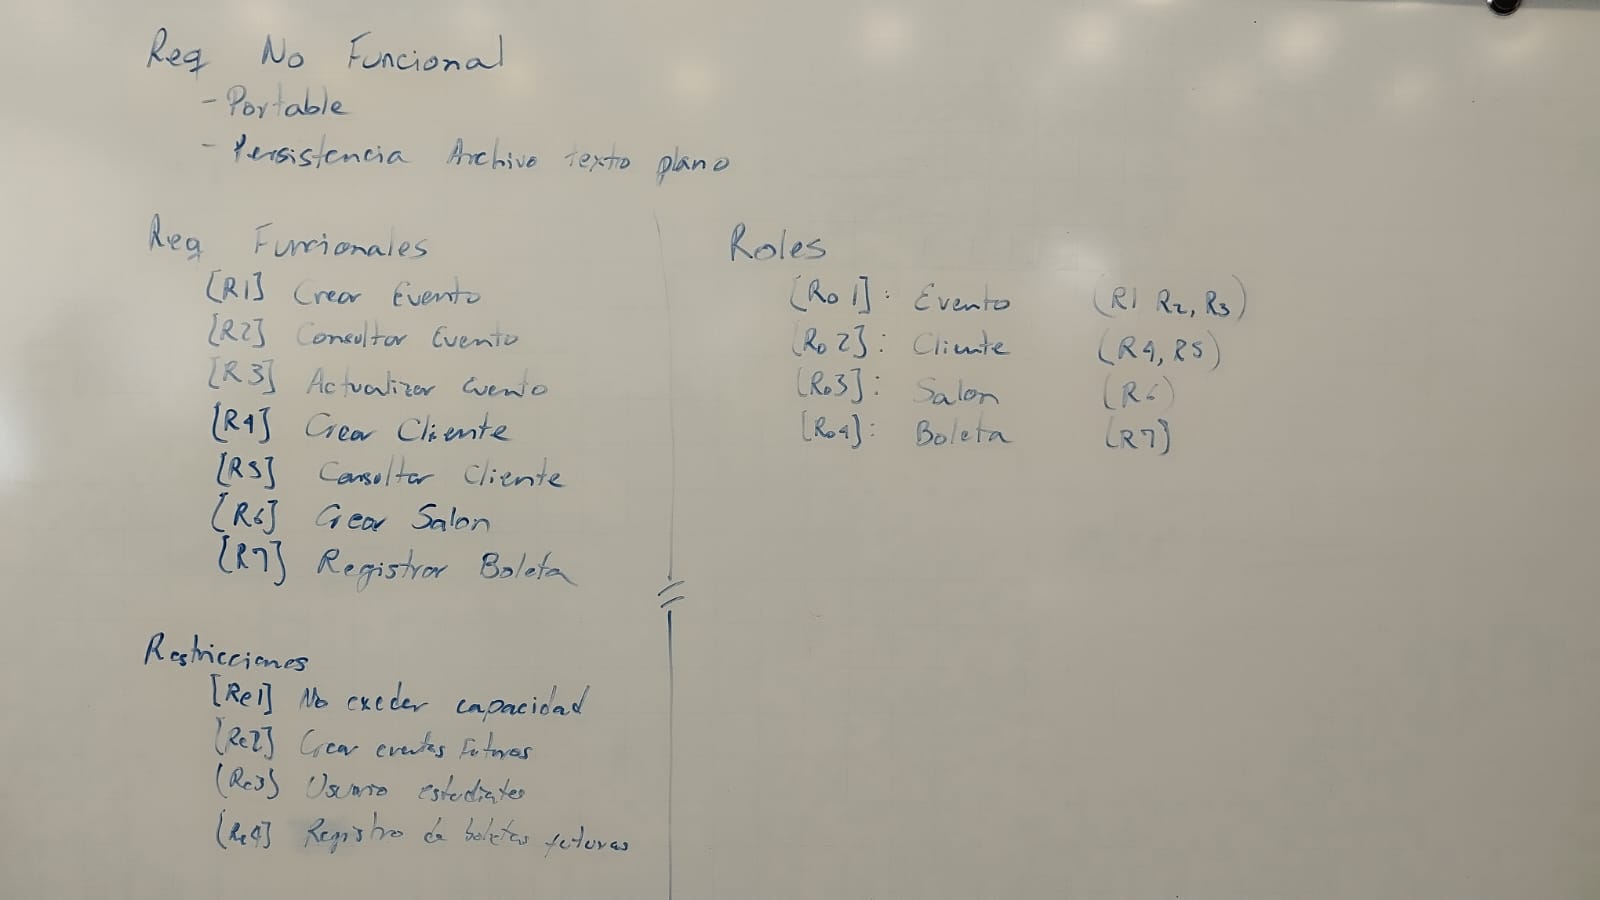 Req No Funcional
- Portable
- Persistencia Archivo texto plano
Req Funcionales
[R1] Crear Evento
[R2] Consultar Evento
[R3] Actualizar Evento
[R4] Crear Cliente
[R5] Consultar Cliente
[R6] Crear Salon
[R7] Registrar Boleta
Restricciones
[Re1] No exceder capacidad
[Re2] Crear eventos Futuros
[Re3] Usuario estudiantes
[Re4] Registro de boletas futuras
Roles
[Ro 1]: Evento (R1 R2, R3)
[Ro 2]: Cliente (R4, R5)
[Ro3]: Salon (R6)
[Ro4]: Boleta [R7]